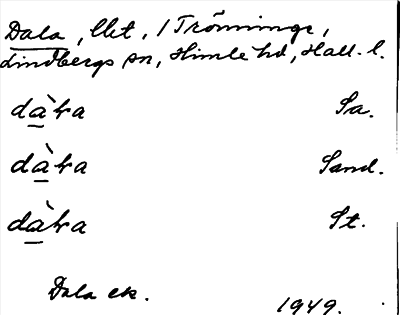 Dala, llet, / Trönninge,
Lindbergs sn, Himle hd, Hall. l.
dàɫa Sa.
dàɫa Sand.
dàɫa St.
Dala ek.
1949.